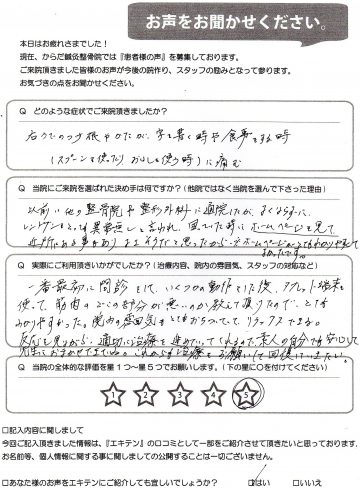 お声をお聞かせください。
本日はお疲れさまでした！
現在、からだ鍼灸整骨院では『患者様の声』を募集しております。
ご来院頂きました皆様のお声が今後の院作り、スタッフの励みとなって参ります。
お気づきの点をお聞かせください。
Q どのような症状でご来院頂きましたか？
右うでのつけ根やひじが、字を書く時や食事をする時
(スプーンを使ったりおはしを使う時)に痛む
Q 当院にご来院を選ばれた決め手は何ですか？（他院ではなく当院を選んで下さった理由）
以前、他の整骨院や整形外科に通院したが、よくならずに、
レントゲンをとっても異常なしと言われ、困っていた時にホームページを見て
Q 実際にご利用頂きいかがでしたか？（治療内容、院内の雰囲気、スタッフの対応など）
一番最初に問診をして、いくつかの動作をした後、タブレット端末を
使って、筋肉のどこの部分が悪いのか教えて頂けたので、とても
わかりやすかった。院内の雰囲気もとてもおちついていてリラックスできる。
反応を見ながら、適切に治療を進めていってくれるので、素人の自分でも安心して
先生におまかせできている。これからも治療をお願いして回復していきたい。
Q 当院の全体的な評価を星１つ～星５つでお願いします。（下の星に〇を付けてください）
1 2 3 4 5
□記入内容に関しまして
今回ご記入頂きました情報は、『エキテン』の口コミとして一部をご紹介させて頂きたいと思っております。
お名前等、個人情報に関する事に関しましての公開することは一切ございません。
□あなた様のお声をエキテンにご紹介しても宜しいでしょうか？ □はい □いいえ